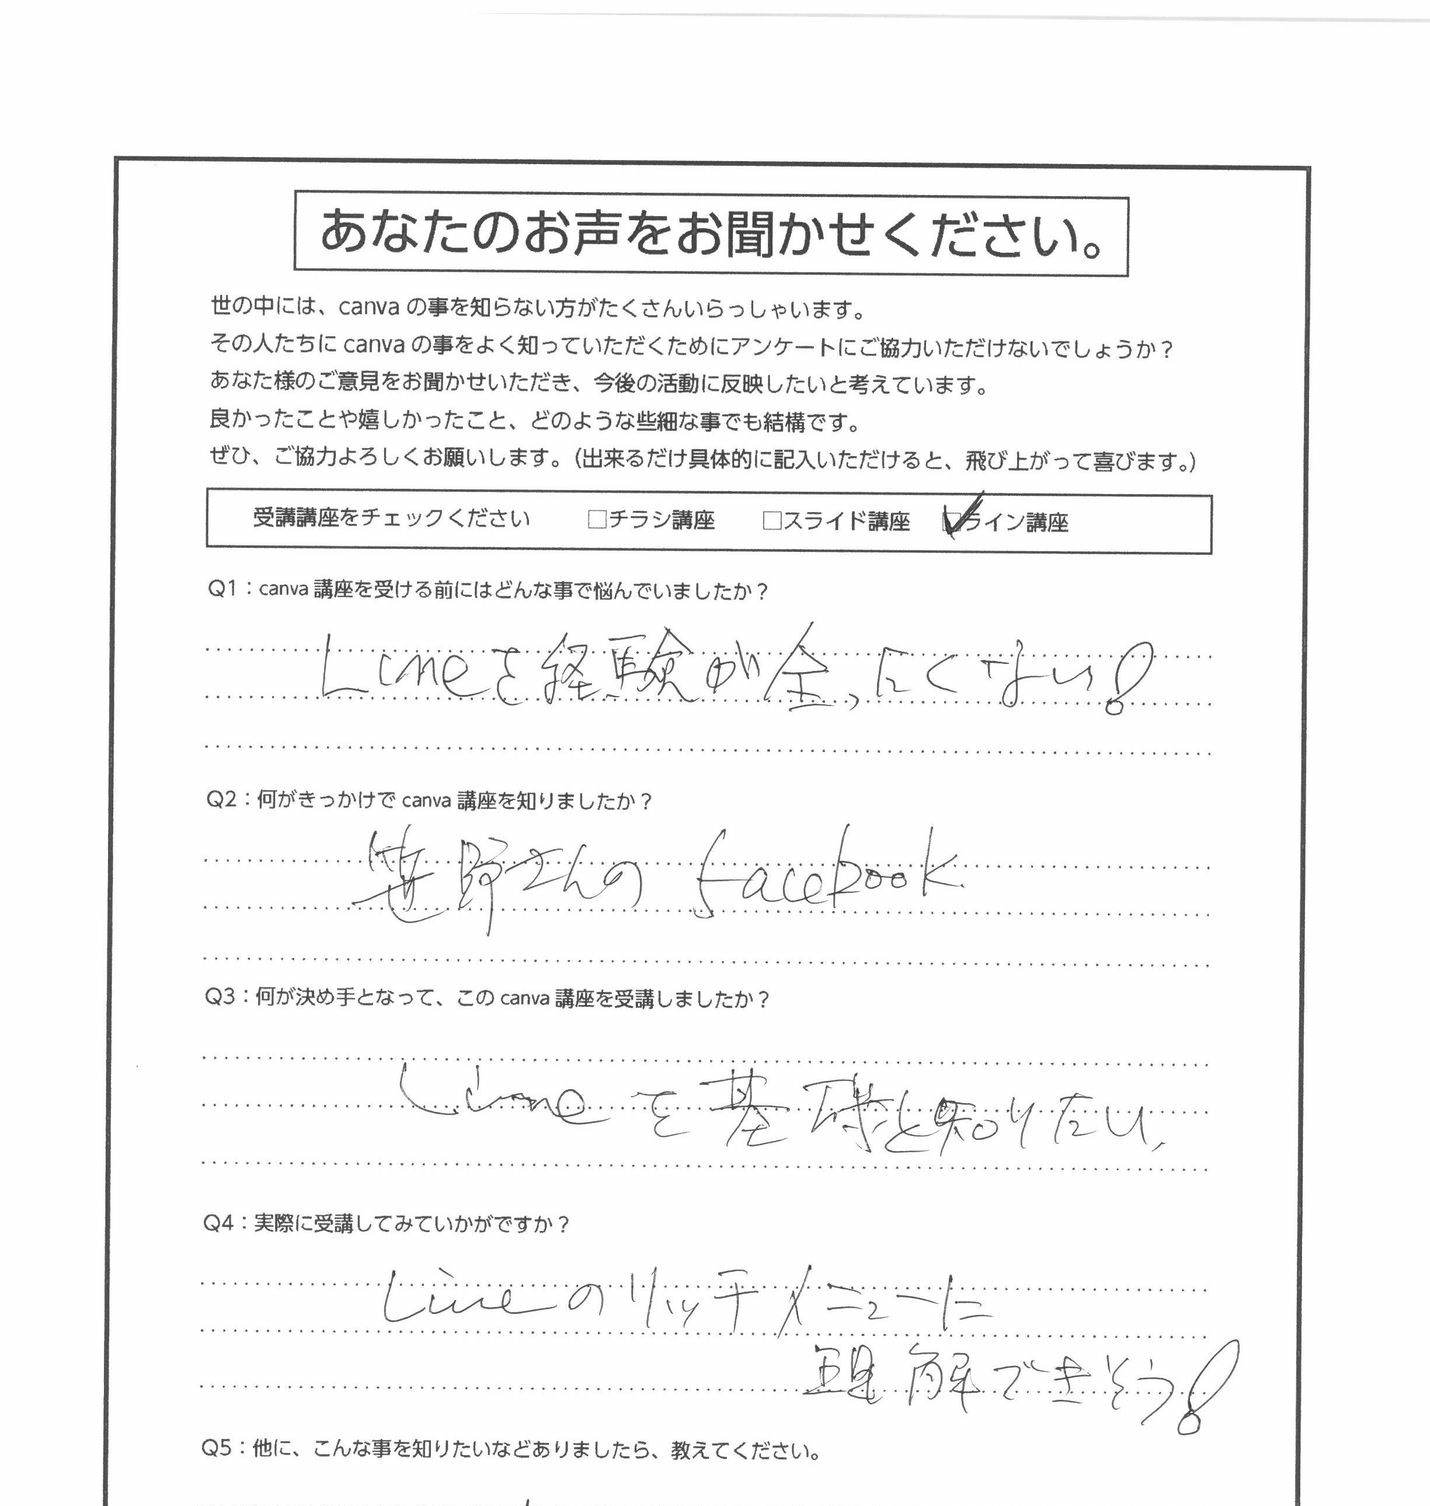 あなたのお声をお聞かせください。
世の中には、canva の事を知らない方がたくさんいらっしゃいます。
その人たちに canva の事をよく知っていただくためにアンケートにご協力いただけないでしょうか？
あなた様のご意見をお聞かせいただき、今後の活動に反映したいと考えています。
良かったことや嬉しかったこと、どのような些細な事でも結構です。
ぜひ、ご協力よろしくお願いします。（出来るだけ具体的に記入いただけると、飛び上がって喜びます。）
受講講座をチェックください □チラシ講座 □スライド講座 ☑ライン講座
Q1：canva 講座を受ける前にはどんな事で悩んでいましたか？
Lineを経験が全ったくない！
Q2：何がきっかけで canva 講座を知りましたか？
笹野さんの facebook.
Q3：何が決め手となって、この canva 講座を受講しましたか？
Lineを基礎と知りたい、
Q4：実際に受講してみていかがですか？
Lineのリッチメニューに
理解できそう！
Q5：他に、こんな事を知りたいなどありましたら、教えてください。